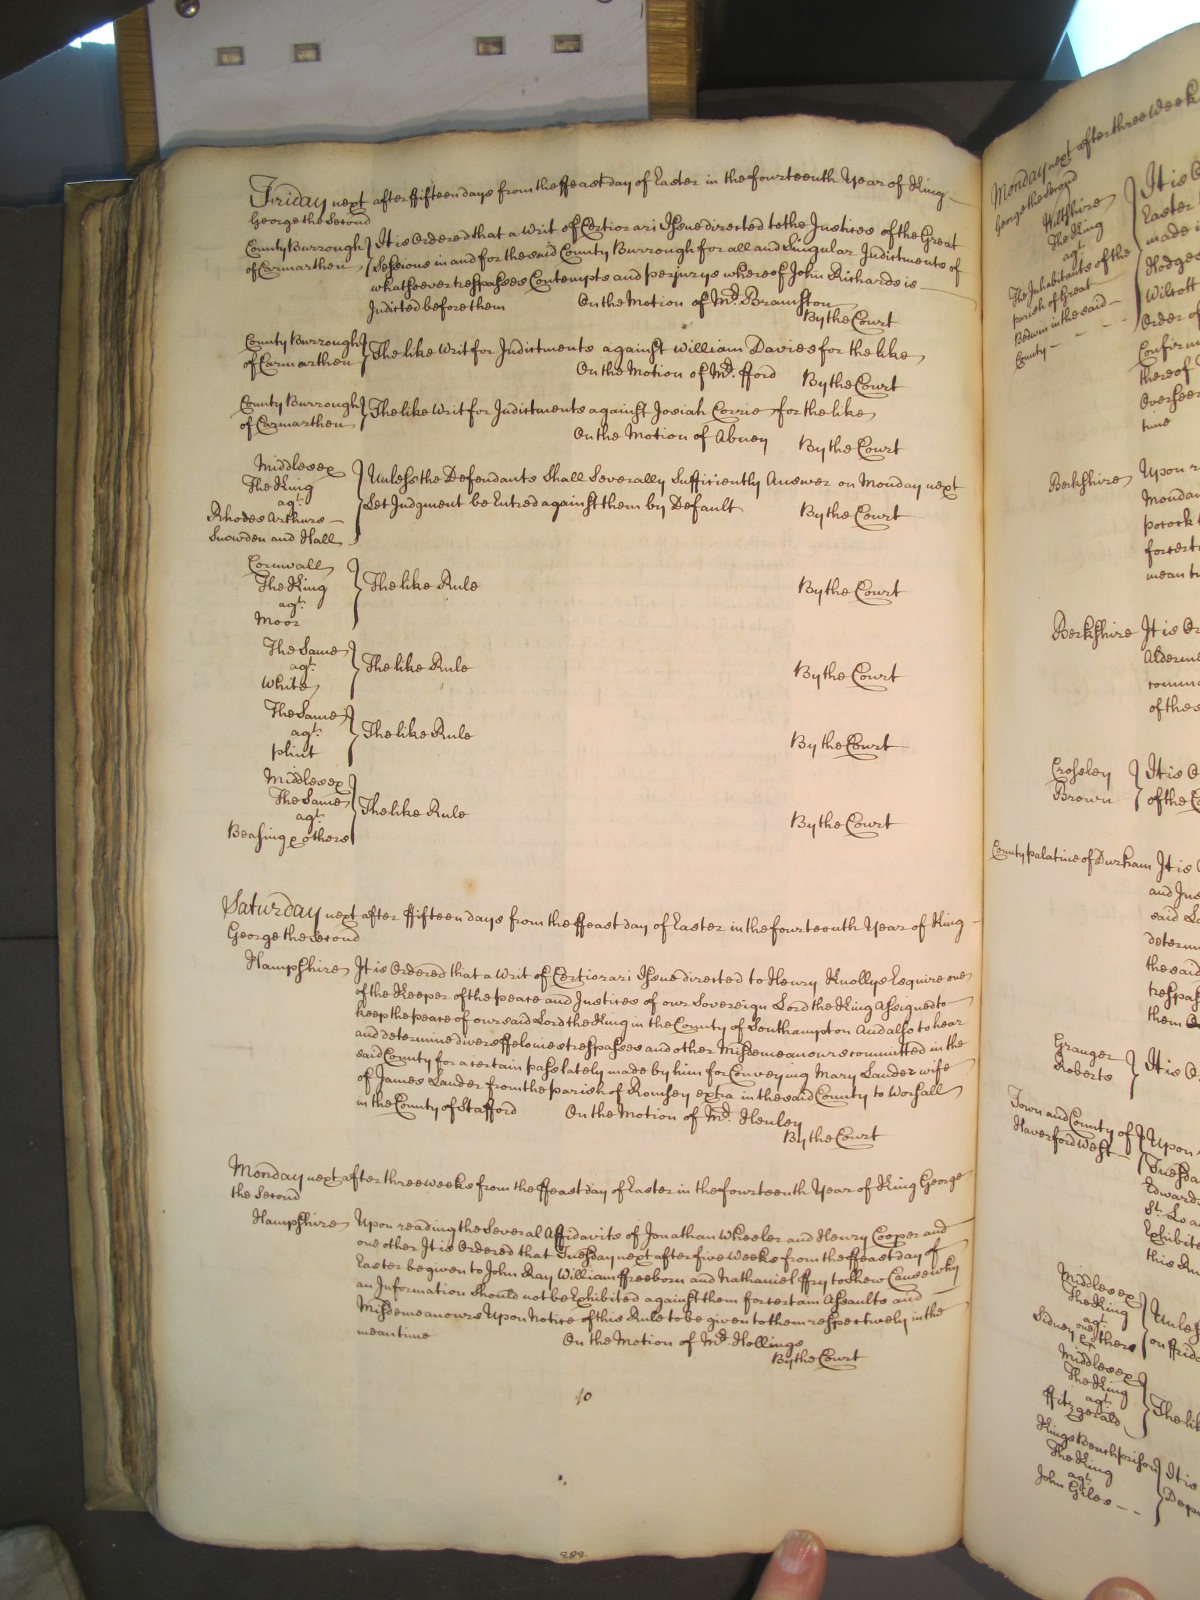 Friday next after ffifteen days from the ffeast day of Easter in the fourteenth Year of King
George the Second
County Burrough of Carmarthen It is Ordered that a Writ of Certiorari Issue directed to the Justices of the Great
Sessions in and for the said County Burrough for all and Singular Indictments of
whatsoever trespasses Contempts and perjurys whereof John Richards is
Indicted before them On the Motion of Mr. Bramston
By the Court
County Burrough of Carmarthen The like Writ for Indictments against William Davies for the like
On the Motion of Mr. fford By the Court
County Burrough of Carmarthen The like Writ for Indictments against Josiah Corrie for the like
On the Motion of Abney By the Court
Middlesex
The King
agt.
Rhodes Arthurs
Snowden and Hall
Unless the Defendants Shall Severally Sufficiently Answer on Monday next
Let Judgment be Entred against them by Default By the Court
Cornwall
The King
agt.
Moor
The like Rule By the Court
The Same
agt.
White
The like Rule By the Court
The Same
agt.
plint
The like Rule By the Court
Middlesex
The Same
agt.
Beasing & others
The like Rule By the Court
Saturday next after ffifteen days from the ffeast day of Easter in the fourteenth Year of King
George the Second
Hampshire It is Ordered that a Writ of Certiorari Issue directed to Henry Knollys Esquire one
of the Keeper of the peace and Justices of our Sovereign Lord the King Assigned to
keep the peace of our said Lord the King in the County of Southampton And also to hear
and determine divers ffelonies trespasses and other Misdemeanours committed in the
said County for a certain pass lately made by him for Conveying Mary Lander wife
of James Lander from the parish of Romsey extra in the said County to Worsall
in the County of Stafford On the Motion of Mr. Henley
By the Court
Monday next after three weeks from the ffeast day of Easter in the fourteenth Year of King George
the Second
Hampshire Upon reading the Several Affidavits of Jonathan Wheeler and Henry Cooper and
one other It is Ordered that Tuesday next after five Weeks from the ffeast day of
Easter be given to John Ray William ffreeborn and Nathaniel ffry to Shew Cause why
an Information Should not be Exhibited against them for certain Assaults and
Misdemeanours Upon Notice of this Rule to be given to them respectively in the
mean time On the Motion of Mr. Hollings
By the Court
10
Monday next after three Week
George the Second
Wiltshire
The King
agt.
The Inhabitants of the
parish of Great
Bedwin in the said
County
It is
Easter
made
Hodges
Order of
Confirm
thereof
Overseer
time
Berkshire Upon
Monday
mean
Berkshire It is
of the
Crosley
Brown
It is
of the
County palatine of Durham It is
and
said
determ
the said
trespas
them
Granger
Roberts
It is
Town and County of
Haverford West
Upon
Tuesday
Edward
Exhibite
this
Middlesex
The King
agt.
Sidney & others
Unless
on ffrida
Middlesex
The King
agt.
ffitzgerald
The lik
Kings Bench prison
The King
agt.
John Giles
It is